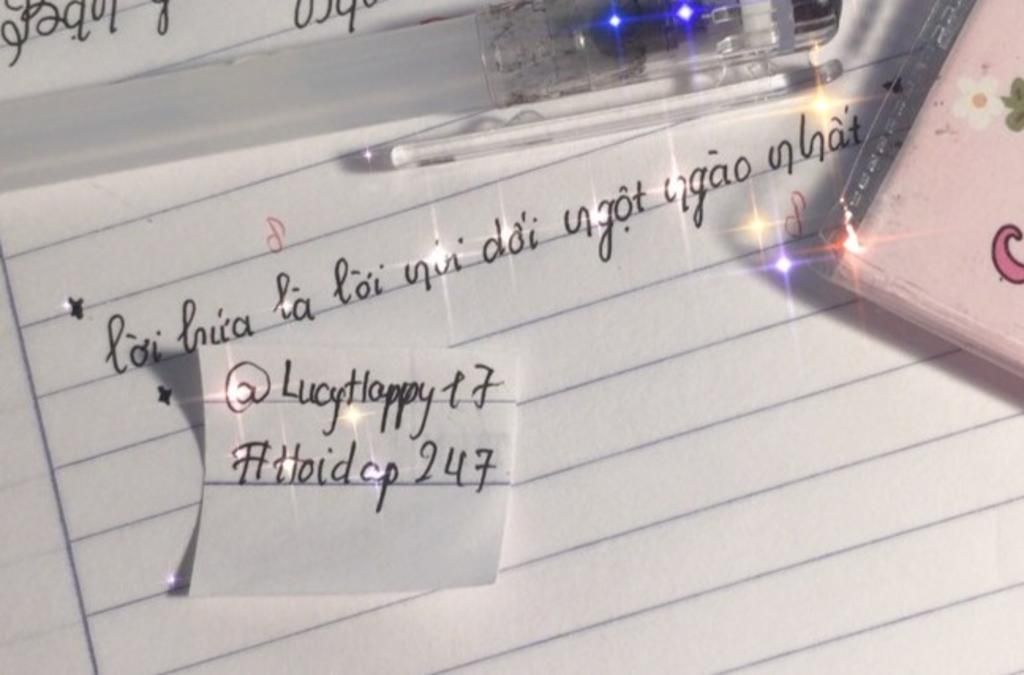 lời hứa là lời nói dối ngọt ngào nhất
@LucyHappy17
#Hoidap247